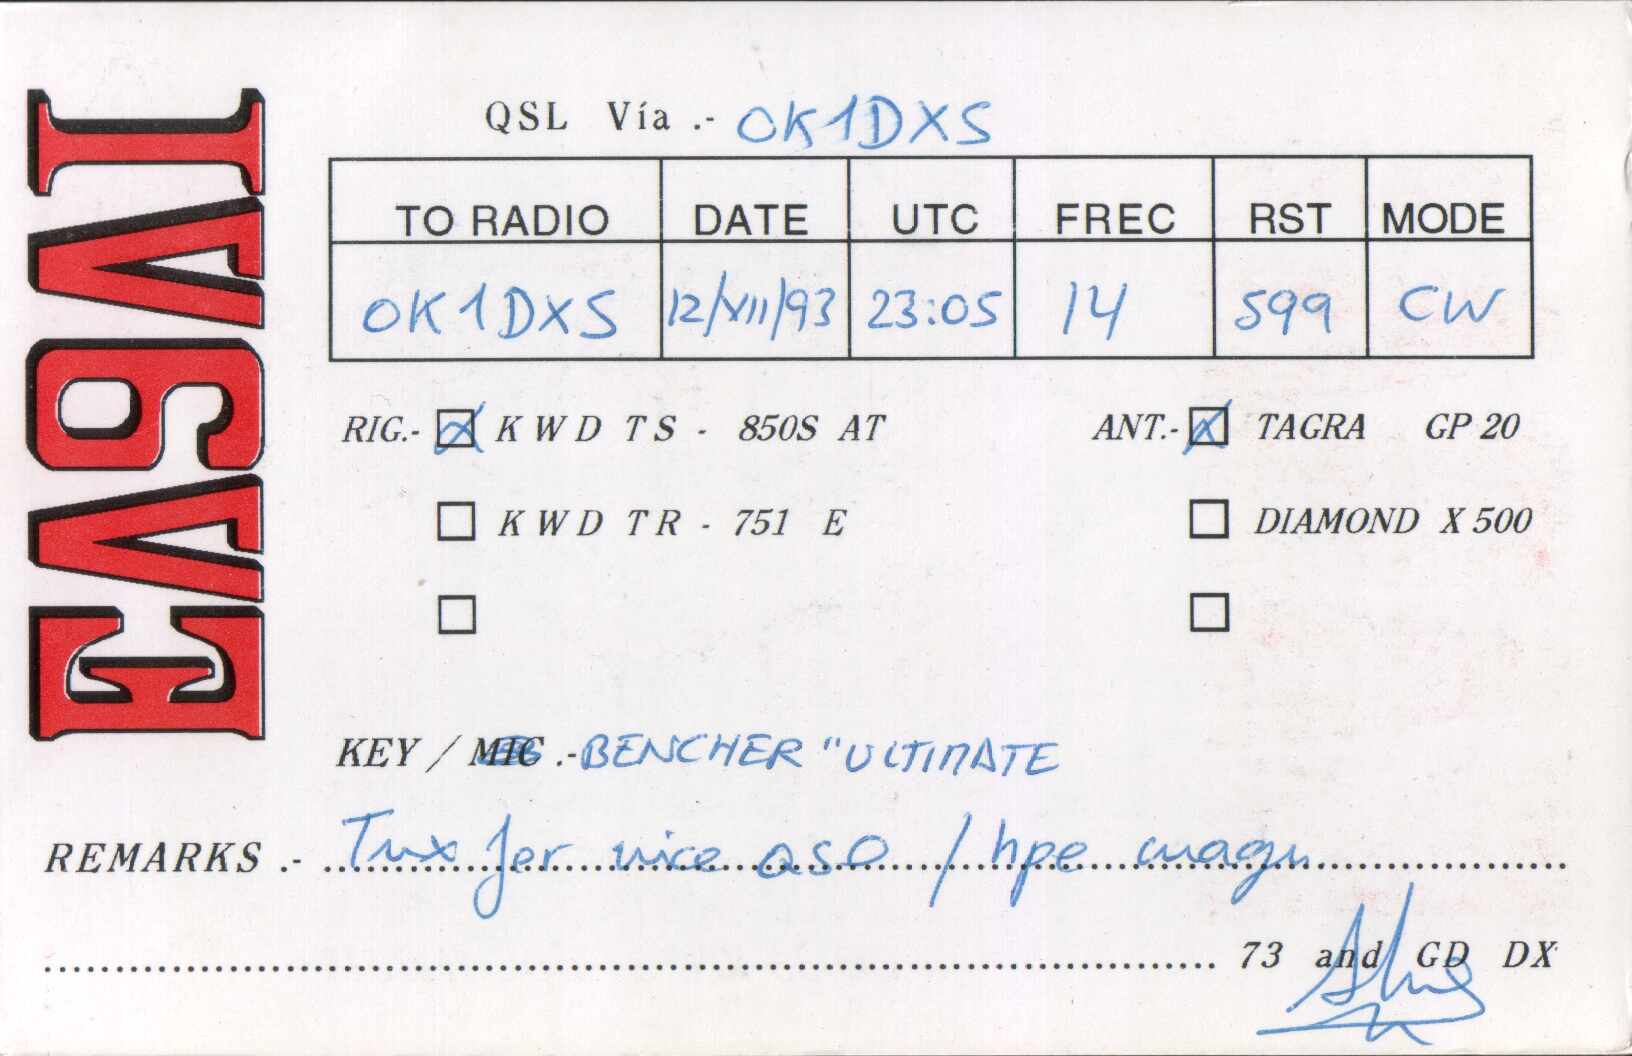 EA9AI
QSL Vía .- OK1DXS
TO RADIO DATE UTC FREC RST MODE
OK1DXS 12/XII/93 23:05 14 599 CW
RIG.- KWD TS - 850S AT ANT.- TAGRA GP 20
KWD TR - 751 E DIAMOND X 500
KEY / MIC .- BENCHER "ULTIMATE
REMARKS .- Tnx fer nice QSO / hpe cuagn
73 and GD DX